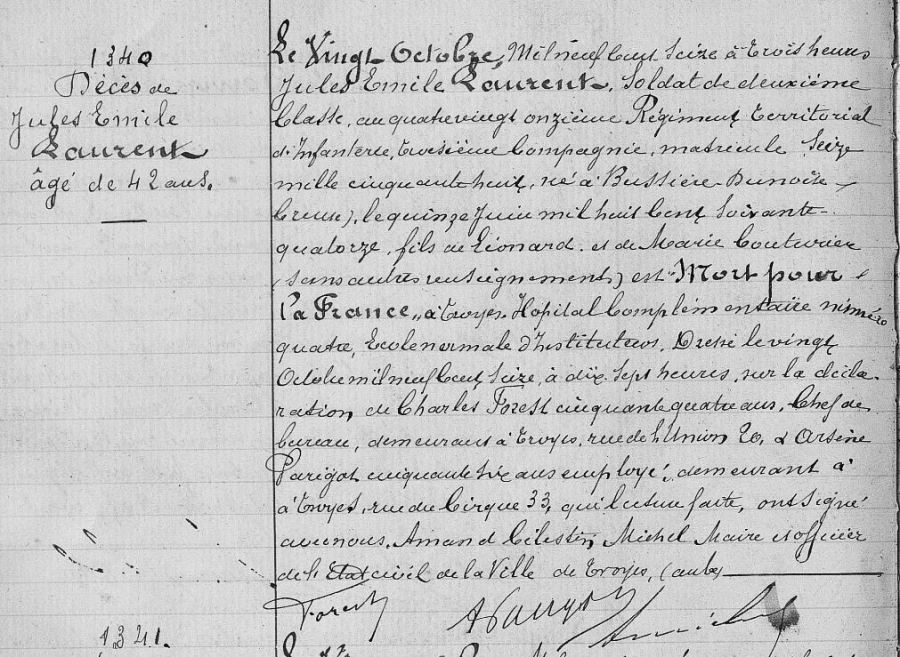 1340
Décès de
Jules Emile
Laurent
âgé de 42 ans.
Le Vingt Octobre, Mil neuf Cent Seize à Trois heures
Jules Emile Laurent, Soldat de deuxième
Classe, au quatre vingt onzième Régiment Territorial
d'Infanterie, Troisième Compagnie, matricule Seize
mille cinquante huit, né à Bussière-Dunoise
Creuse), le quinze Juin mil huit Cent Soixante-
quatorze, fils de Léonard et de Marie Couturier
(sans autres renseignements) est Mort pour
la France, à Troyes Hôpital Complémentaire numéro
quatre, Ecole normale d'Instituteurs. Dressé le vingt
Octobre mil neuf Cent Seize, à dix sept heures, sur la décla-
ration de Charles Forest cinquante quatre ans, Chef de
bureau, demeurant à Troyes, rue de l'Union 20, & Arsène
Parigot cinquante six ans employé, demeurant à
à Troyes, rue du Cirque 33, qui lecture faite, ont signé
avec nous, Amand Célestin Michel Maire et officier
de l'Etat civil de la Ville de Troyes, (aube)
Forest
A Parigot
1341.